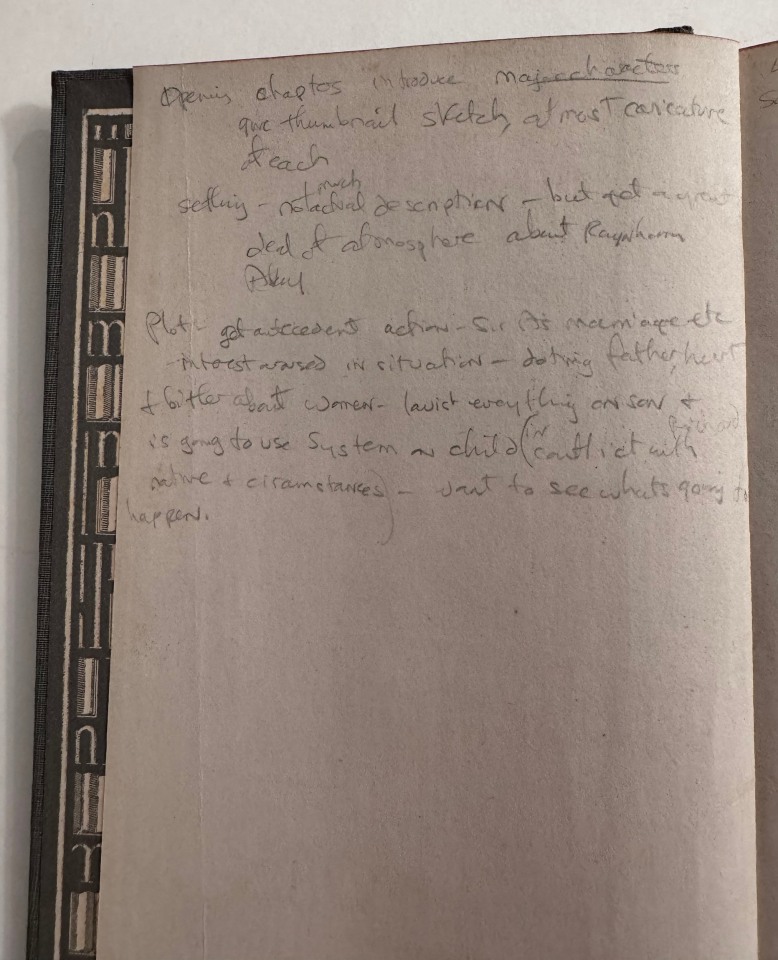 Opening chapters introduce major characters
give thumbnail sketch, almost caricature
of each
setting - not much actual description - but get a great
deal of atmosphere about Raynham
Abbey
Plot - get antecedent action - Sir A's marriage etc
- interest aroused in situation - doting father, hurt
& bitter about women - lavist everything on son &
is going to use System on child (in conflict with Richard
native & circumstances) - want to see whats going to
happen.